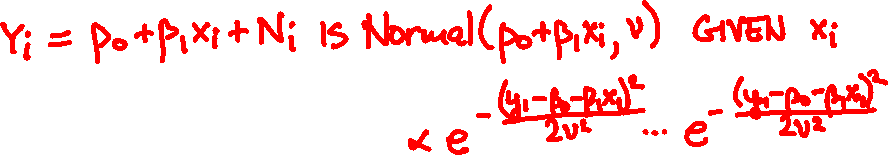 Yᵢ = β₀+β₁xᵢ+Nᵢ IS Normal(β₀+β₁xᵢ, ν) GIVEN xᵢ
∝ e^{-\frac{(y₁-β₀-β₁x₁)²}{2ν²}} ... e^{-\frac{(y₁-β₀-β₁xᵢ)²}{2ν²}}